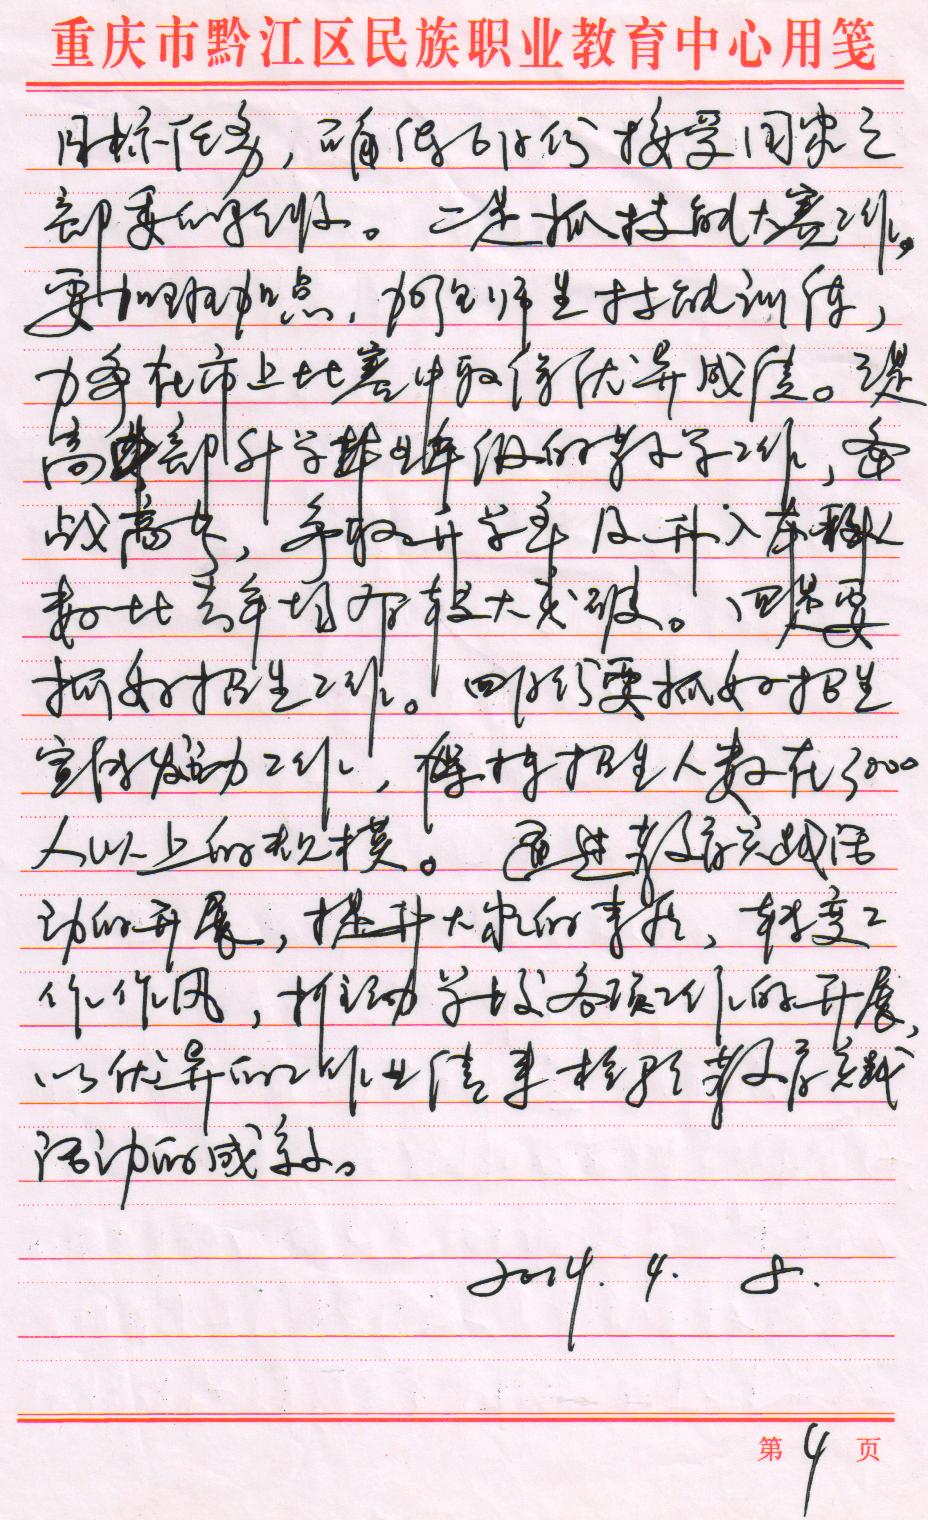 重庆市黔江区民族职业教育中心用笺
目标任务,确保6月份接受国家三
部委的验收。二是抓技能大赛工作。
要加班加点,加强师生技能训练,
力争在市上比赛中取得优异成绩。三是
高三部升学毕业年级的教学工作,备
战高考,争取升学率及升入本科人
数比去年均有较大突破。四是要
抓好招生工作。四月份要抓好招生
宣传发动工作,保持招生人数在3000
人以上的规模。通过教育实践活
动的开展,提升大家的素质,转变工
作作风,推动学校各项工作的开展,
以优异的工作业绩来检验教育实践
活动的成效。
2014.4.8.
第4页